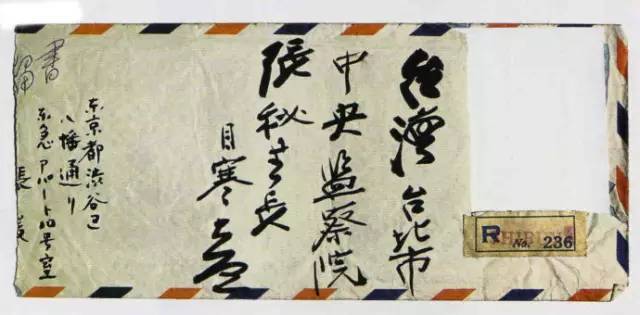 台灣 台北市
中央監察院
張秘書長
目寒
書留
東京都渋谷区
八幡通り
東急アパート 号室
張爰
R No. 236